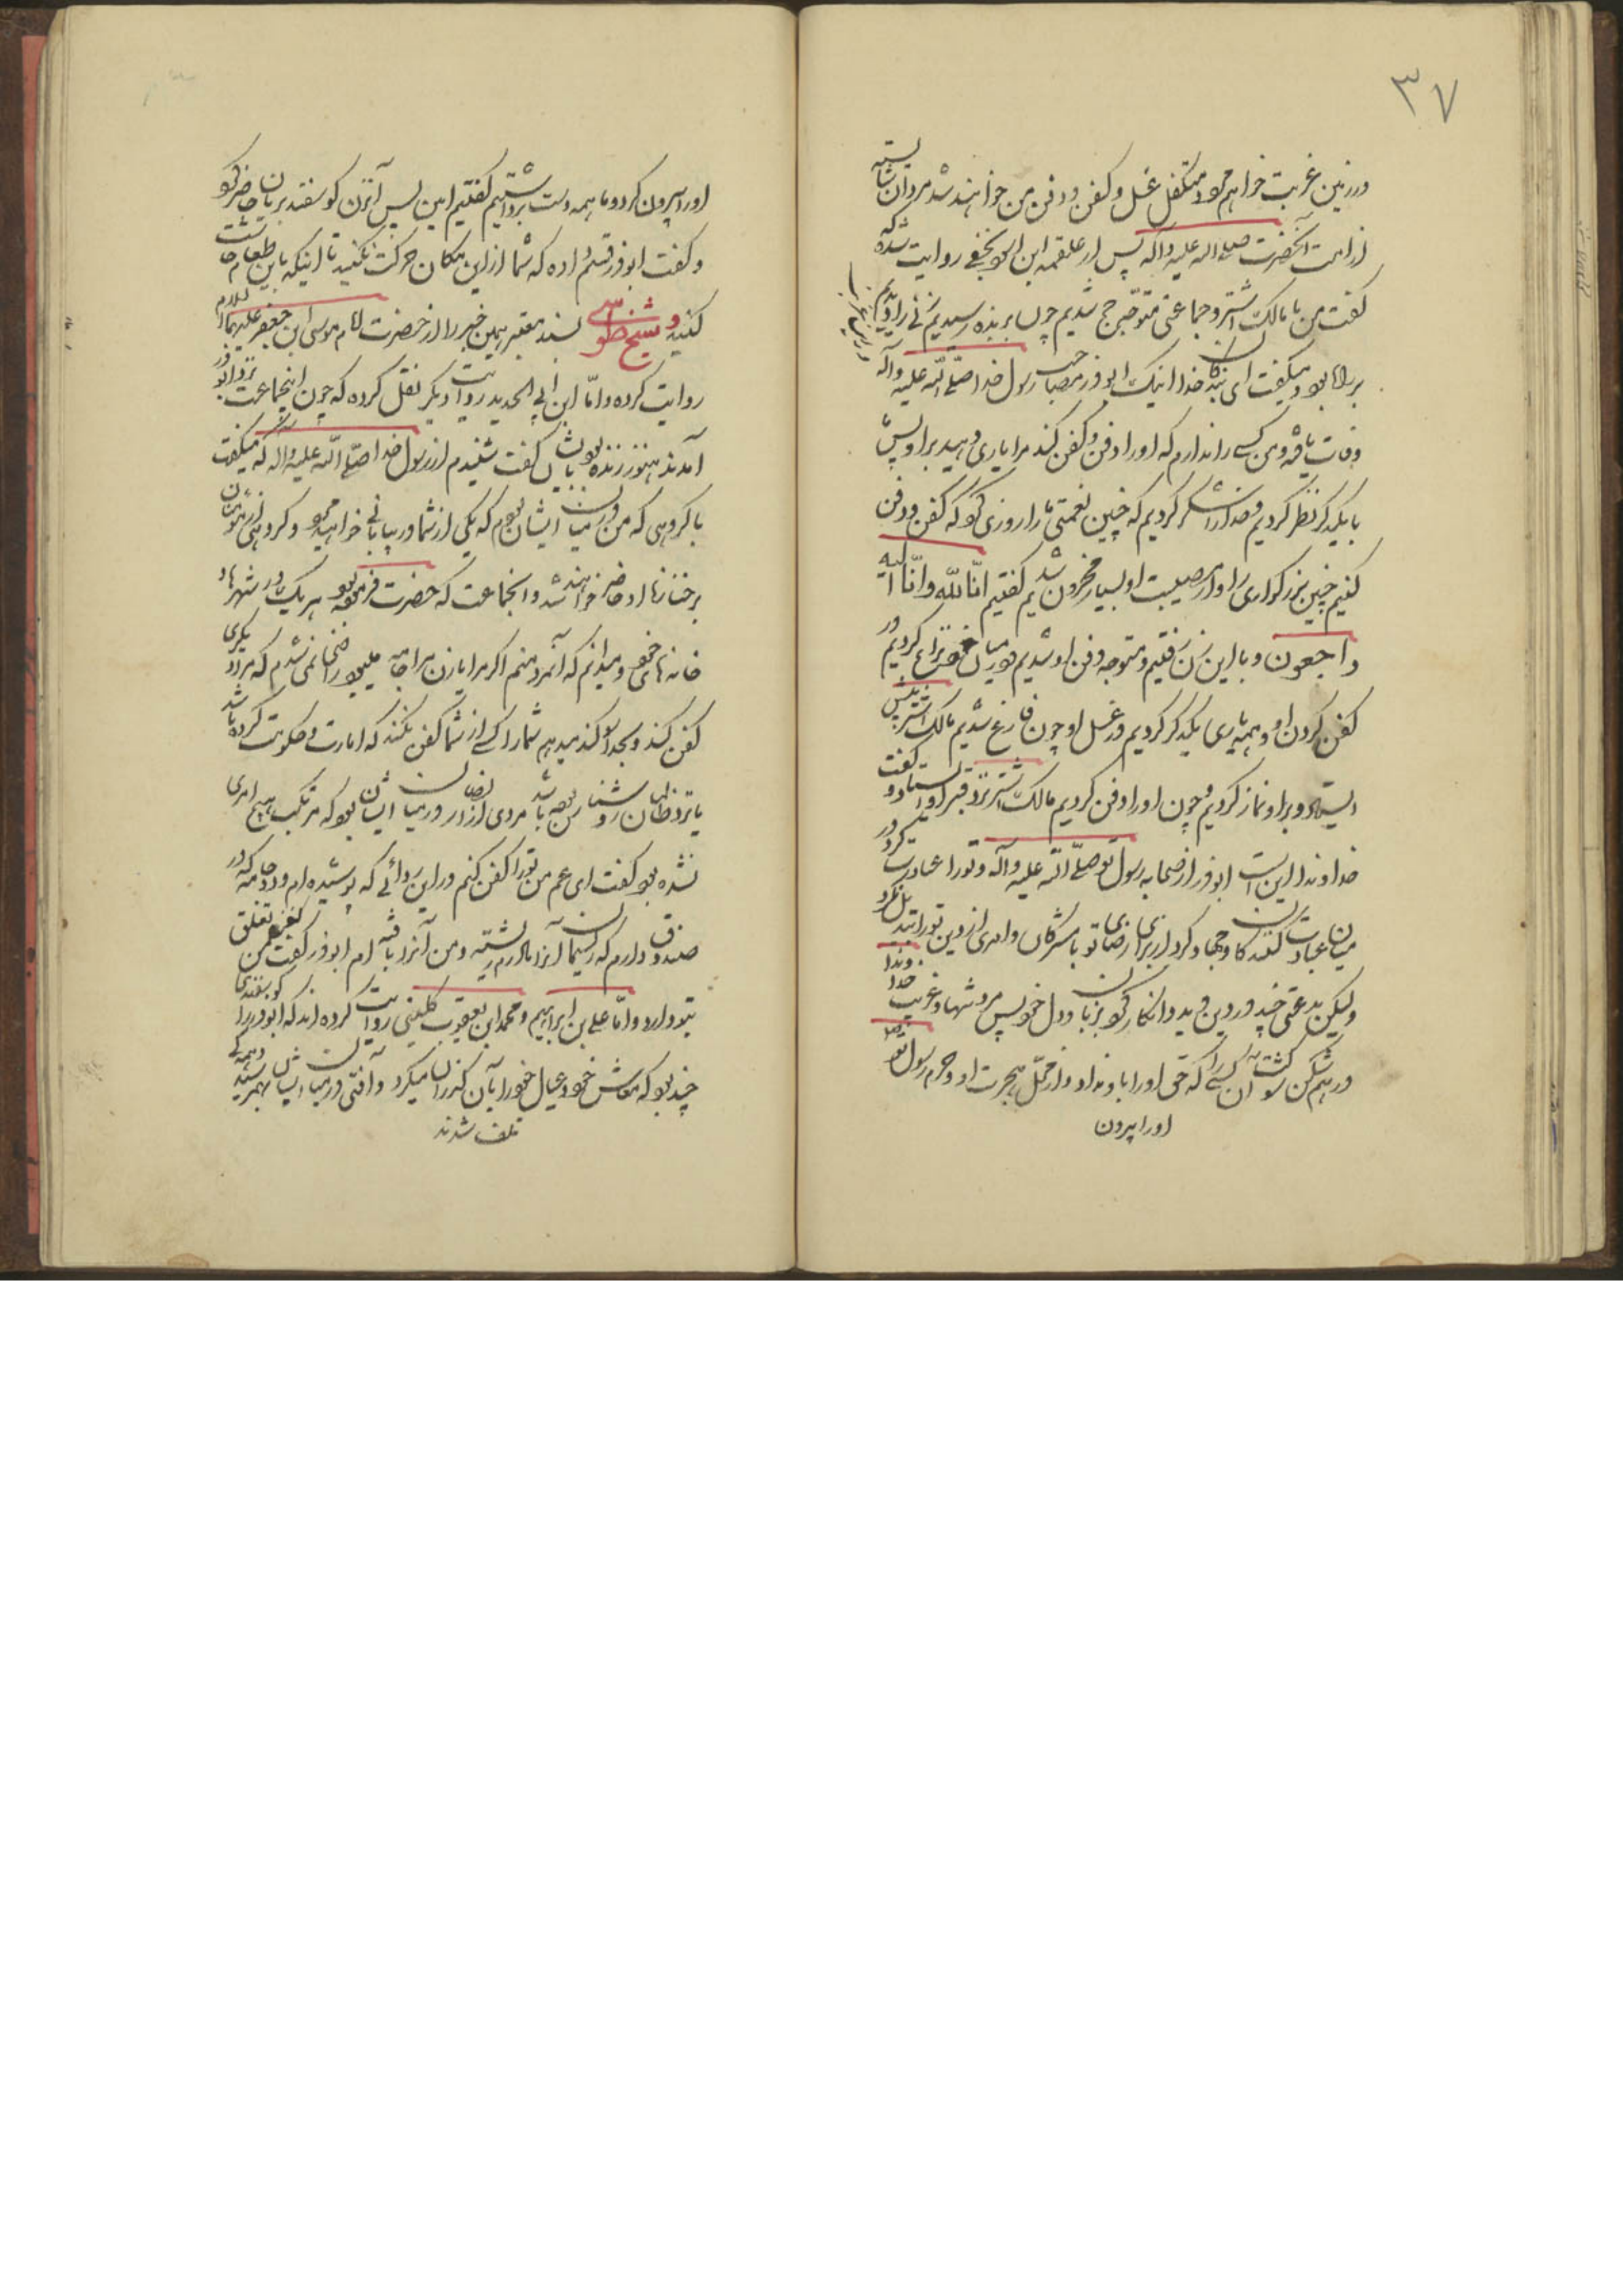 ۳۷
در زمین غربت خواهم مرد و متکفل غسل و کفن و دفن من خواهند شد مردان شایسته
از امت آنحضرت صلی الله علیه و آله پس از علقمه ابن اسود نخعی روایت شده که
گفت من با مالک اشتر و جماعتی متوجه حج شدیم چون بربذه رسیدیم زنی را دیدیم
بر سر راه بود و میگفت ای بندگان خدا اینک ابوذر مصاحب رسول خدا صلی الله علیه و آله
وفات یافته و من کسی را ندارم که او را دفن و کفن کند مرا یاری دهید بر او پس
با یکدیگر نظر کردیم و خدا را شکر کردیم که چنین نعمتی ما را روزی کرد که کفن و دفن
کنیم چنین بزرگواری را و از مصیبت او بسیار محزون شدیم گفتیم انّا لله و انّا الیه
راجعون و با این زن رفتیم و متوجه دفن او شدیم و در میان خود نزاع کردیم در
کفن کردن او و همه یاری یکدیگر کردیم در غسل او چون فارغ شدیم مالک اشتر پیش
ایستاد و بر او نماز کردیم و چون او را دفن کردیم مالک اشتر نزد قبر او ایستاد و گفت
خداوندا این است ابوذر از صحابه رسول تو صلی الله علیه و آله و تو را عبادت کرد در
میان عبادت کنندگان و جهاد کرد از برای رضای تو با مشرکان و امری از دین تو را تبدیل نکرد
ولیکن بدعتی چند در دین دید و انکار کرد بزبان و دل خود پس مرد تنها و غریب خداوندا
در هم شکن آن کسی که حق او را باو نداد و از محل هجرت او و حرم رسول تو
او را بیرون
او را بیرون کرد و ما همه دست برداشتیم گفتیم امین پس آنزن گوسفند بریان حاضر کرد
و گفت ابوذر قسم داده که شما از این مکان حرکت نکنید تا اینکه باین طعام چاشت
کنید و شیخ طوسی بسند معتبر همین خبر را از حضرت امام موسی ابن جعفر علیهما السلام
روایت کرده و امّا ابن ابی الحدید روایت دیگر نقل کرده که چون اینجماعت نزد ابوذر
آمدند هنوز زنده بود بایشان گفت شنیدم از رسول خدا صلی الله علیه و آله که میگفت
با گروهی که من در میان ایشان بودم که یکی از شما در بیابانی خواهید مرد و گروهی از مؤمنان
بر جنازه او حاضر خواهند شد و انجماعت که حضرت فرموده بود هر یک در شهرها و
خانه های خود و میدانم که آنمرد منم اگر مرا یا زن مرا جامه میبود راضی نمی شدم که مرا دیگری
کفن کند و بخدا سوگند میدهم شما را کسی از شما کفن نکند که امارت و حکومت کرده باشد
یا نزد ظالمان روشناس بوده باشد مردی از انصار در میان ایشان بود که مرتکب هیچ امری
نشده بود گفت ای عم من تو را کفن کنم در این ردائی که پوشیده ام و دو جامه که در
صندوق دارم که ریسمان آنرا مادرم رشته و من آنرا بافته ام ابوذر گفت کفن من تعلق
بتو دارد و امّا علی بن ابراهیم و محمد ابن یعقوب کلینی روایت کرده اند که ابوذر را گوسفندی
چند بود که معاش خود و عیال خود را بآن گذران میکرد و آفتی در میان ایشان بهمرسید و همه
تلف شدند